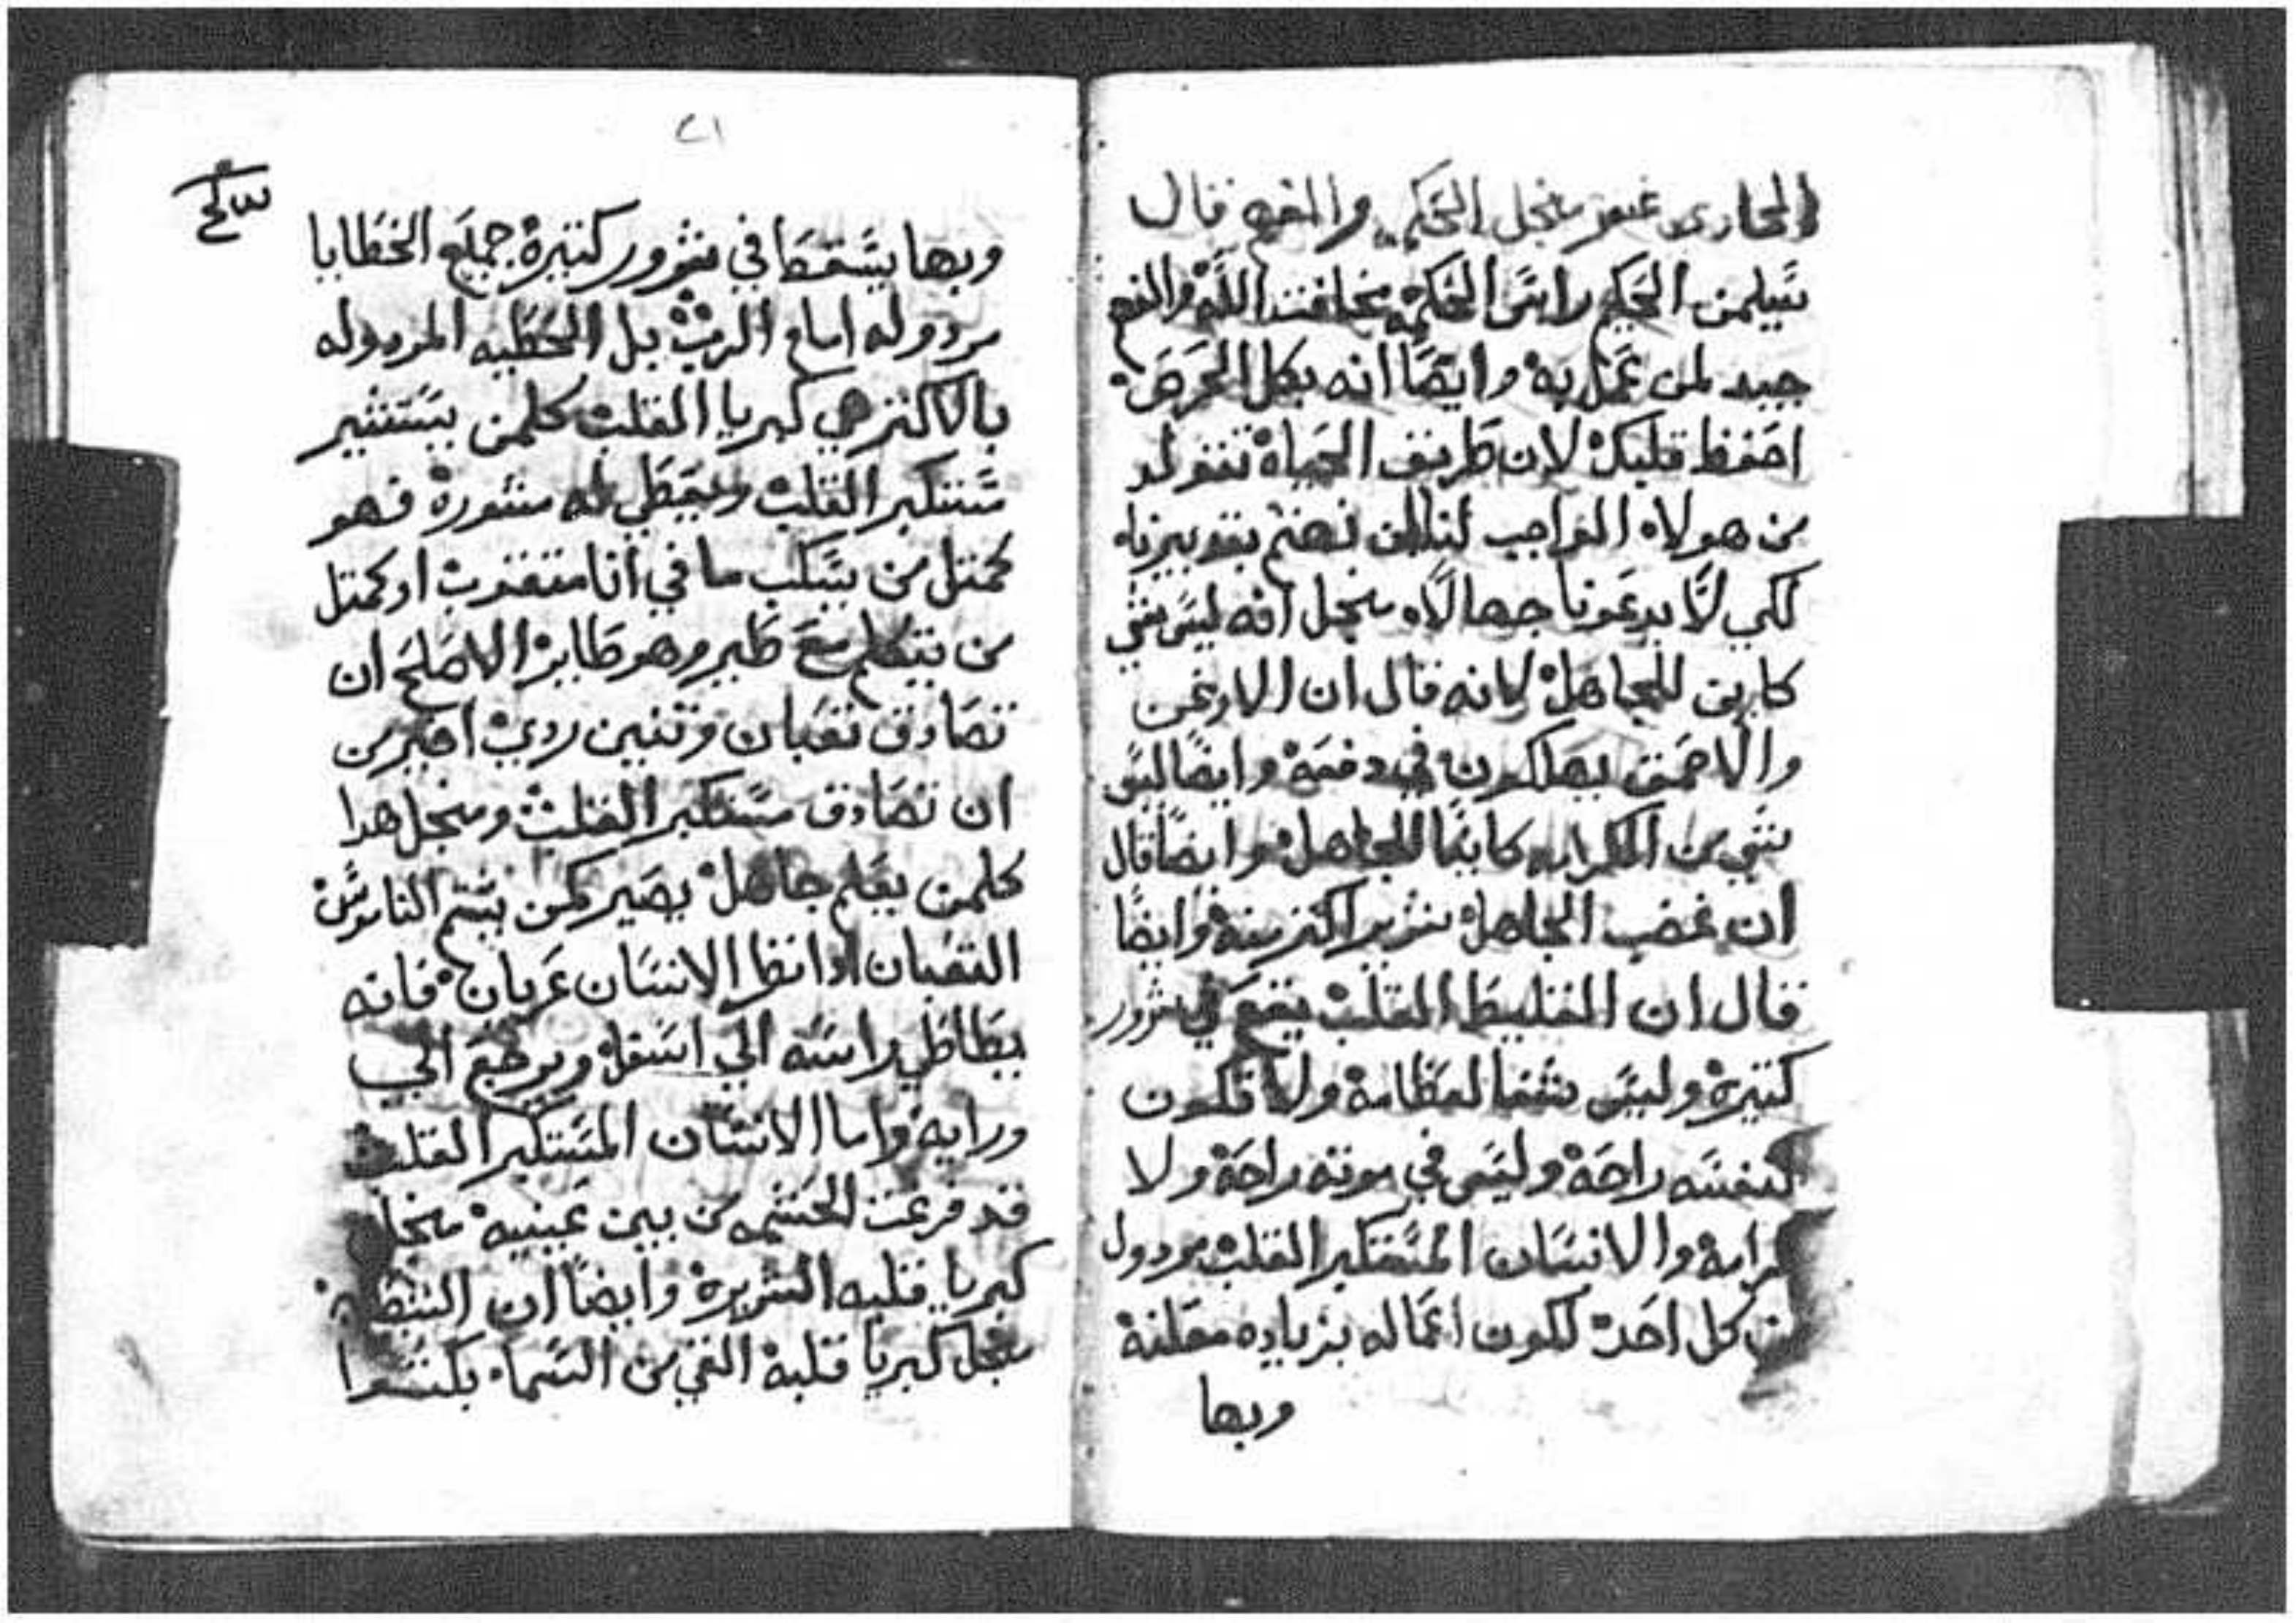 الحادى عشر منجل الحكمه والفهم قال
سليمن الحكيم راس الحكمه مخافت الله والفهم
جيد لمن عمل به وايضًا انه بكل الحرص
احفظ قلبك لان طريف الحياه تتولد
من هولاء الواجب لنا ان نهتم بتدبيرنا
لكي لا يدعونا جهالاه منجل انه ليس شي
كاين للجاهل لانه قال ان الارعن
والاحمق يهلكون في دفعه وايضًا ليس
شي من الكرامه كاينًا للجاهل وايضًا قال
ان غضب الجاهل شرير اكتر منه وايضًا
قال ان الغليظ القلب يقع في شرور
كتيره وليس شفا لعظامه ولا تكون
لنفسه راحه وليس في موته راحه ولا
كرامه والانسان المستكبر القلب مردول
من كل احد لكون اعماله بزياده معلنه
وبها
٢١
وبها يسقط في شرور كتيره جميع الخطايا
مردوله امام الرب بل الخطيه المردوله
بالاكتر هي كبريا القلب كلمن يستشير
مستكبر القلب ويعطي له مشوره فهو
كمتل من يسكب ما في انا متقوب او كمتل
من يتكلم مع طير وهو طاير الاصلح ان
تصادق تعبان وتنين ردي اخير من
ان تصادق مستكبر القلب ومنجل هدا
كلمن يعلم جاهل يصير كمن يشتم الناموس
التعبان ادا نظر الانسان عريان فانه
يطاطي راسه الي اسفل ويرجع الي
ورايه واما الانسان المستكبر القلب
قد فرغت الحشمه من بين عينيه منجل
كبريا قلبه الشريره وايضًا ان الشيطان
منجل كبريا قلبه القي من السماء